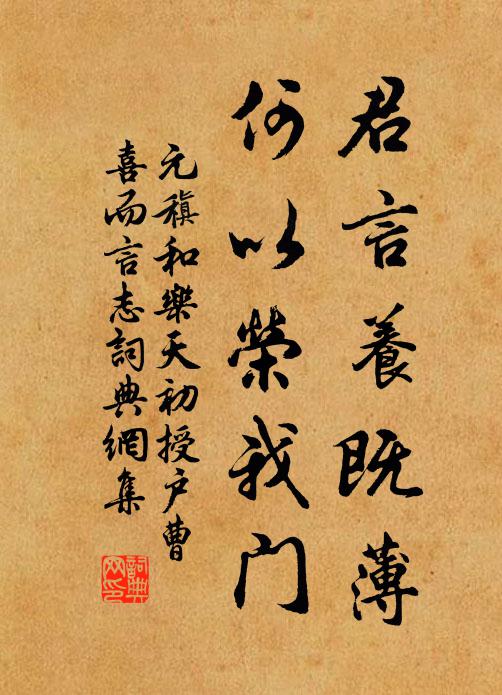 君言養既薄
何以榮我門
元稹和樂天初授户曹
喜而言志詞典網集
詞典网印